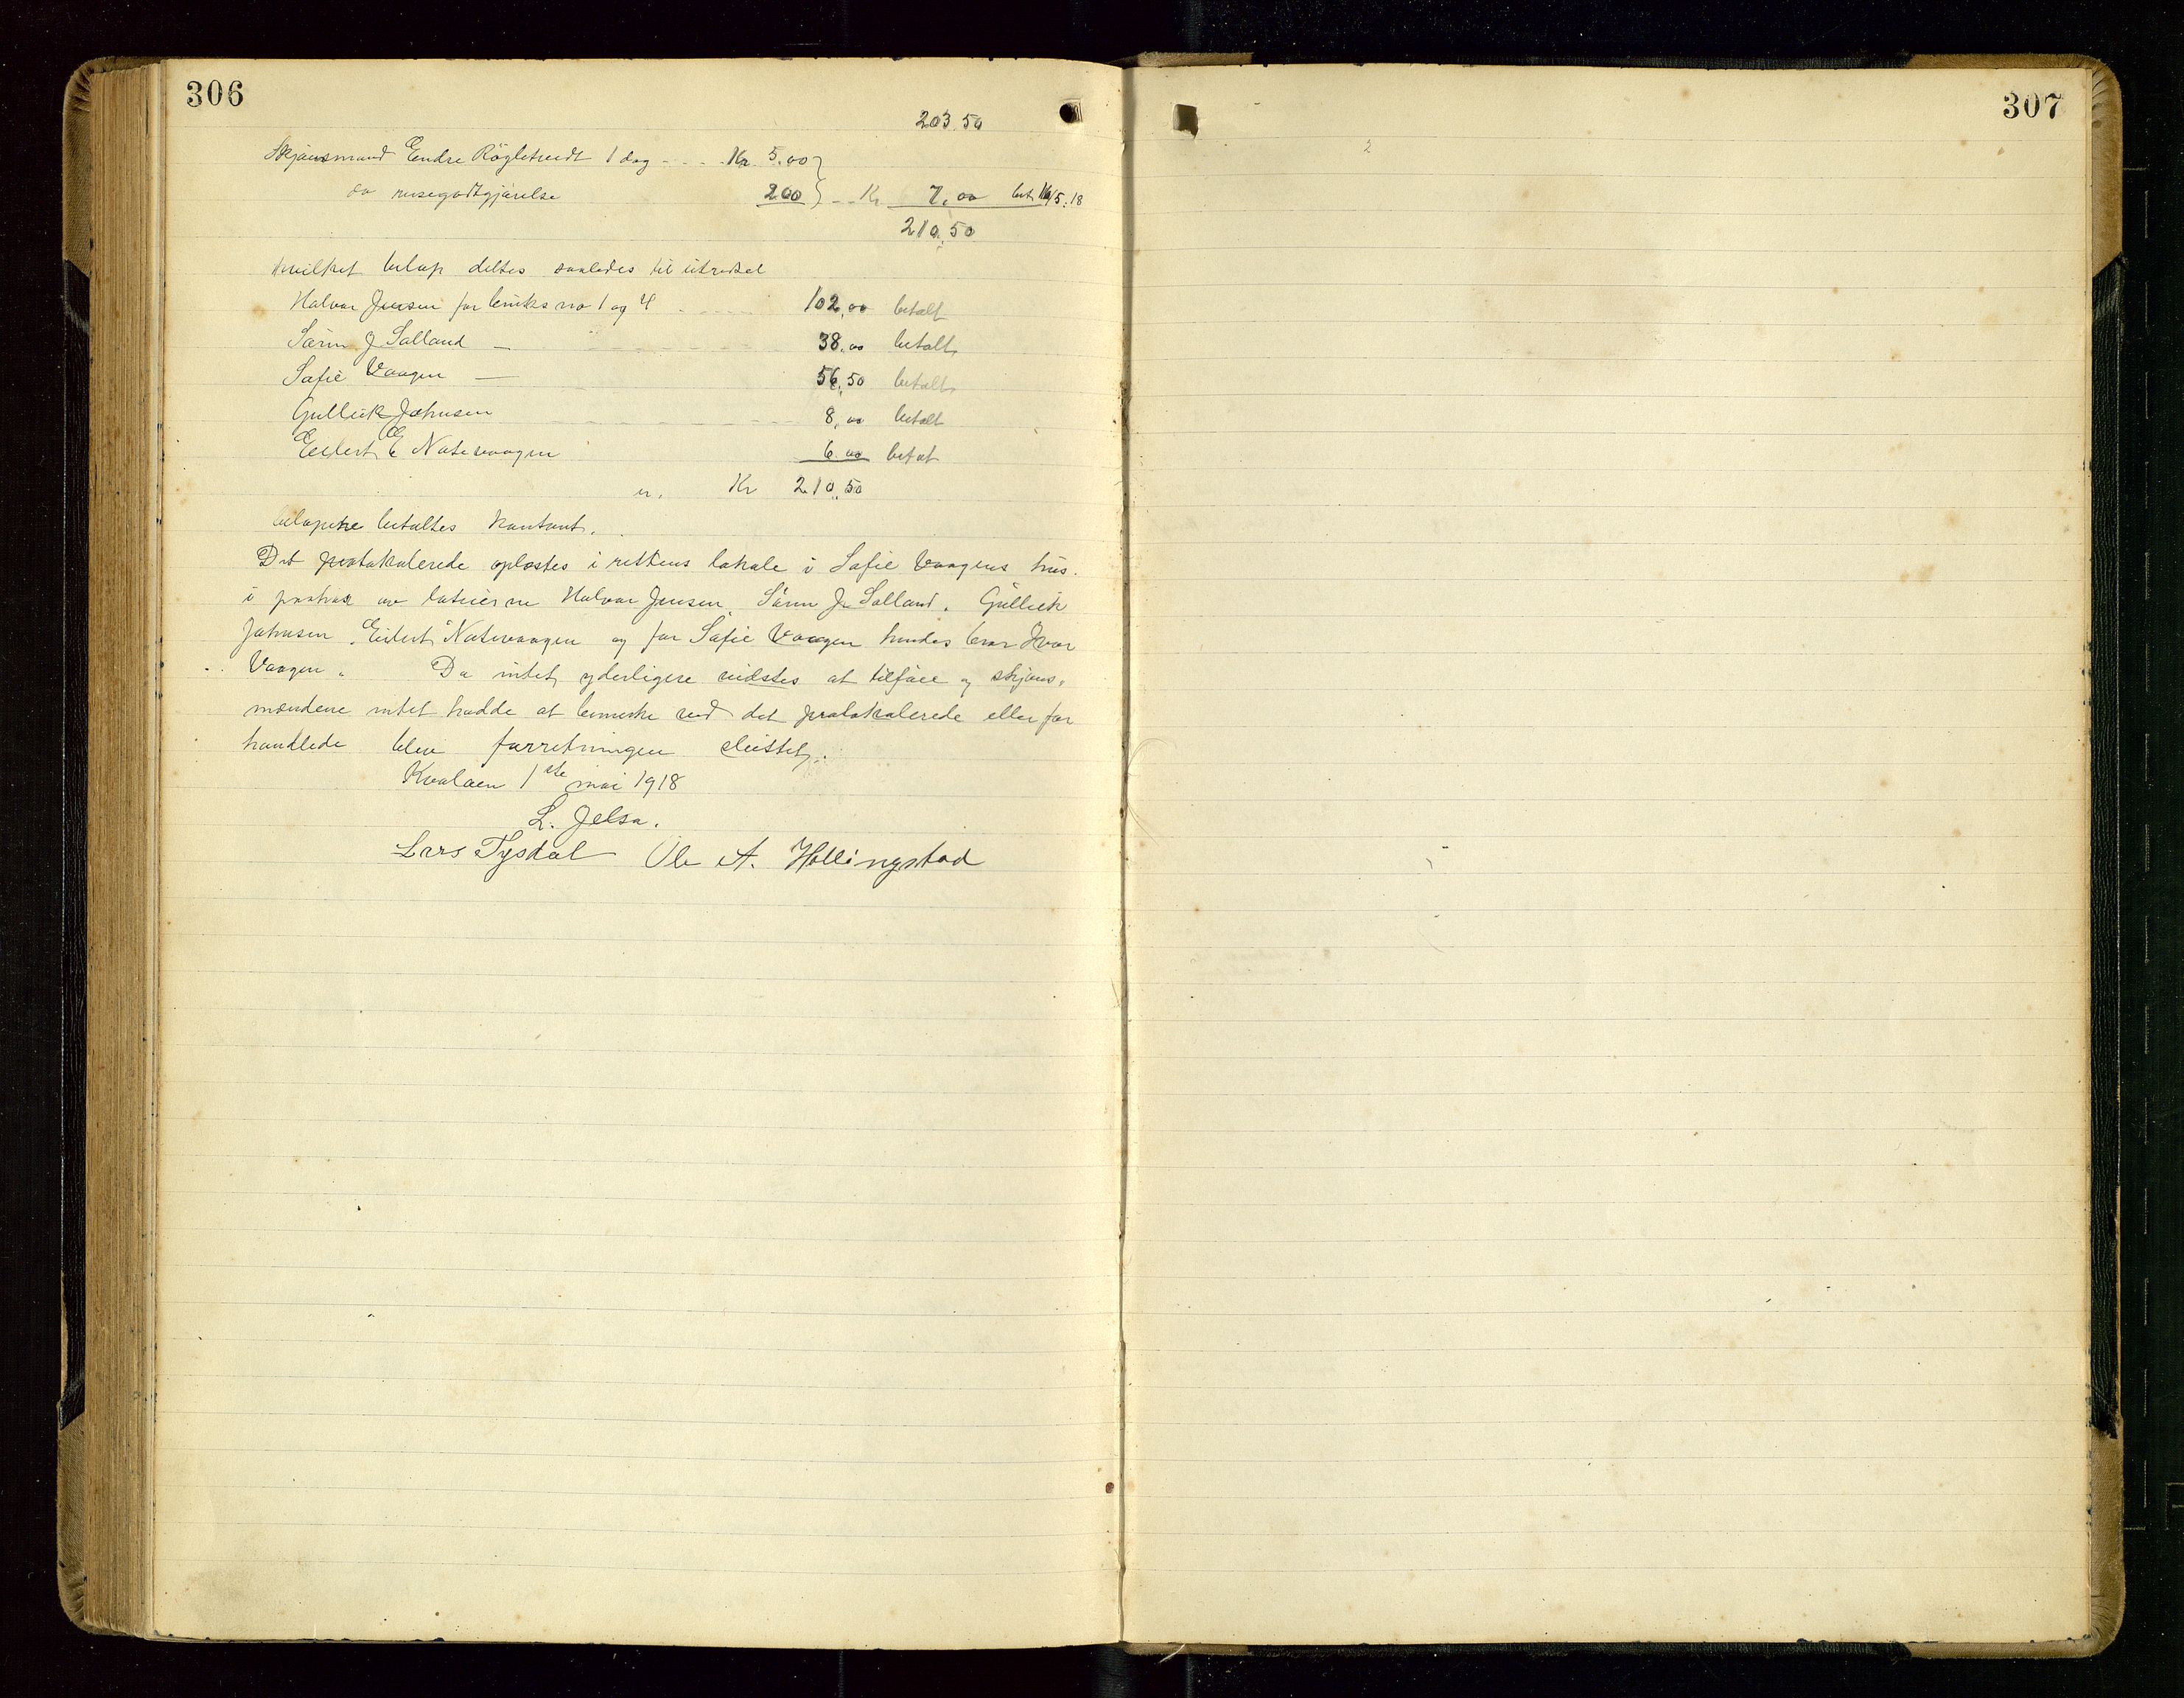 306
203.50
Skjønsmand Endre Rögletvedt 1 dag - - - - Kr. 5.00
do reisegodtgjørelse 2.00 - - Kr 7.00 bet. 16/5.18
210,50
hvilket beløp deltes saaledes til utredsel
Halvor Jensen for bruks no 1 og 4 - - - - 102,00 betalt
Sørin J. Salland — 38.00 betalt
Sofie Vaagen — 56,50 betalt
Gulleik Johnsen 8,00 betalt
Eilert E Natevaagen 6.00 betat
er. Kr 210,50
beløpene betaltes kontant.
Det protokolerede oplæstes i rettens lokale i Sofie Vaagens hus.
i paahør av lodeierne Halvor Jensen, Sørin J. Salland. Gulleik
Johnsen. Eilert Natevaagen og for Sofie Vaagen hendes bror Ivar
Vaagen. Da intet yderligere vidstes at tilføie og skjøns-
mændene intet hadde at bemerke ved det protokolerede eller for
handlede blev forretningen sluttet.
Kvaløen 1ste mai 1918
L. Jelsa.
Lars Tysdal Ole A. Hollingstad
307
2